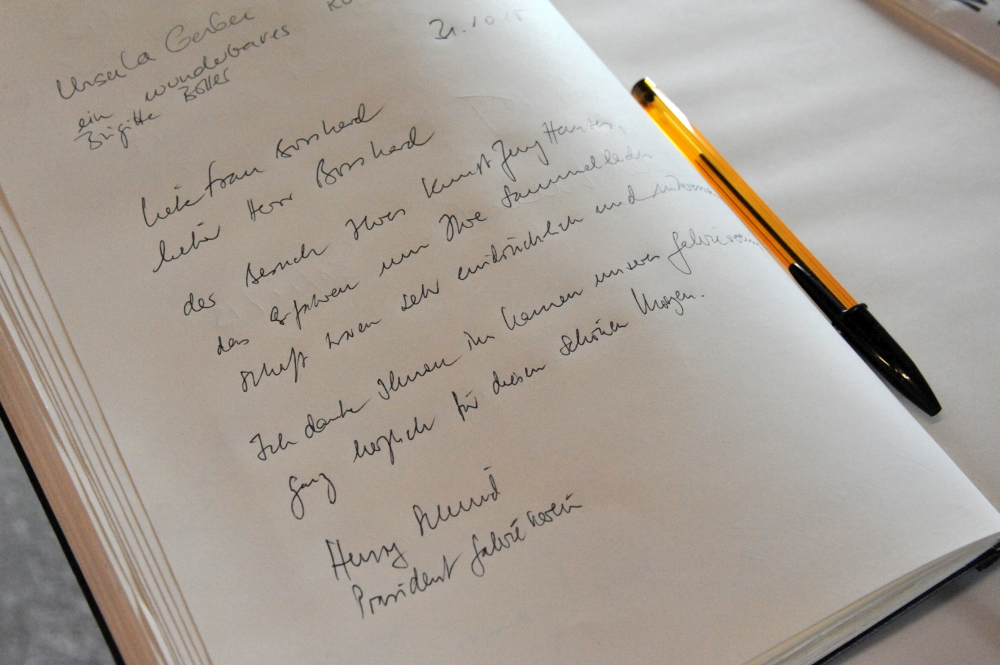 Ursula Gerber
ein wunderbares
Brigitte Boller
21.10.15
Liebe Frau Bosshard
lieber Herr Bosshard
der Besuch Ihres Kunst Zeug Hauses,
das Erfahren um Ihre Sammelleiden
schaft waren sehr eindrücklich und
Ich danke Ihnen im Namen unseres
ganz herzlich für diesen schönen Morgen.
Henry Schmid
Präsident Galerieverein